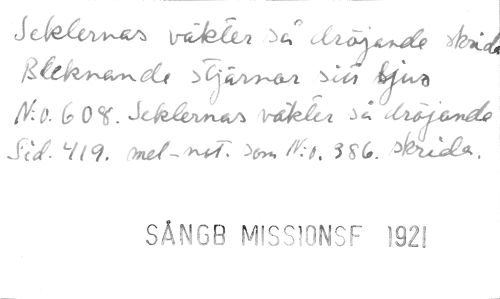 Seklernas väkter så dröjande skrida
Bleknande stjärnor sitt ljus
N:o. 608. Seklernas väkter så dröjande
Sid. 419. mel-not. som N:o. 386. skrida.
SÅNGB MISSIONSF 1921